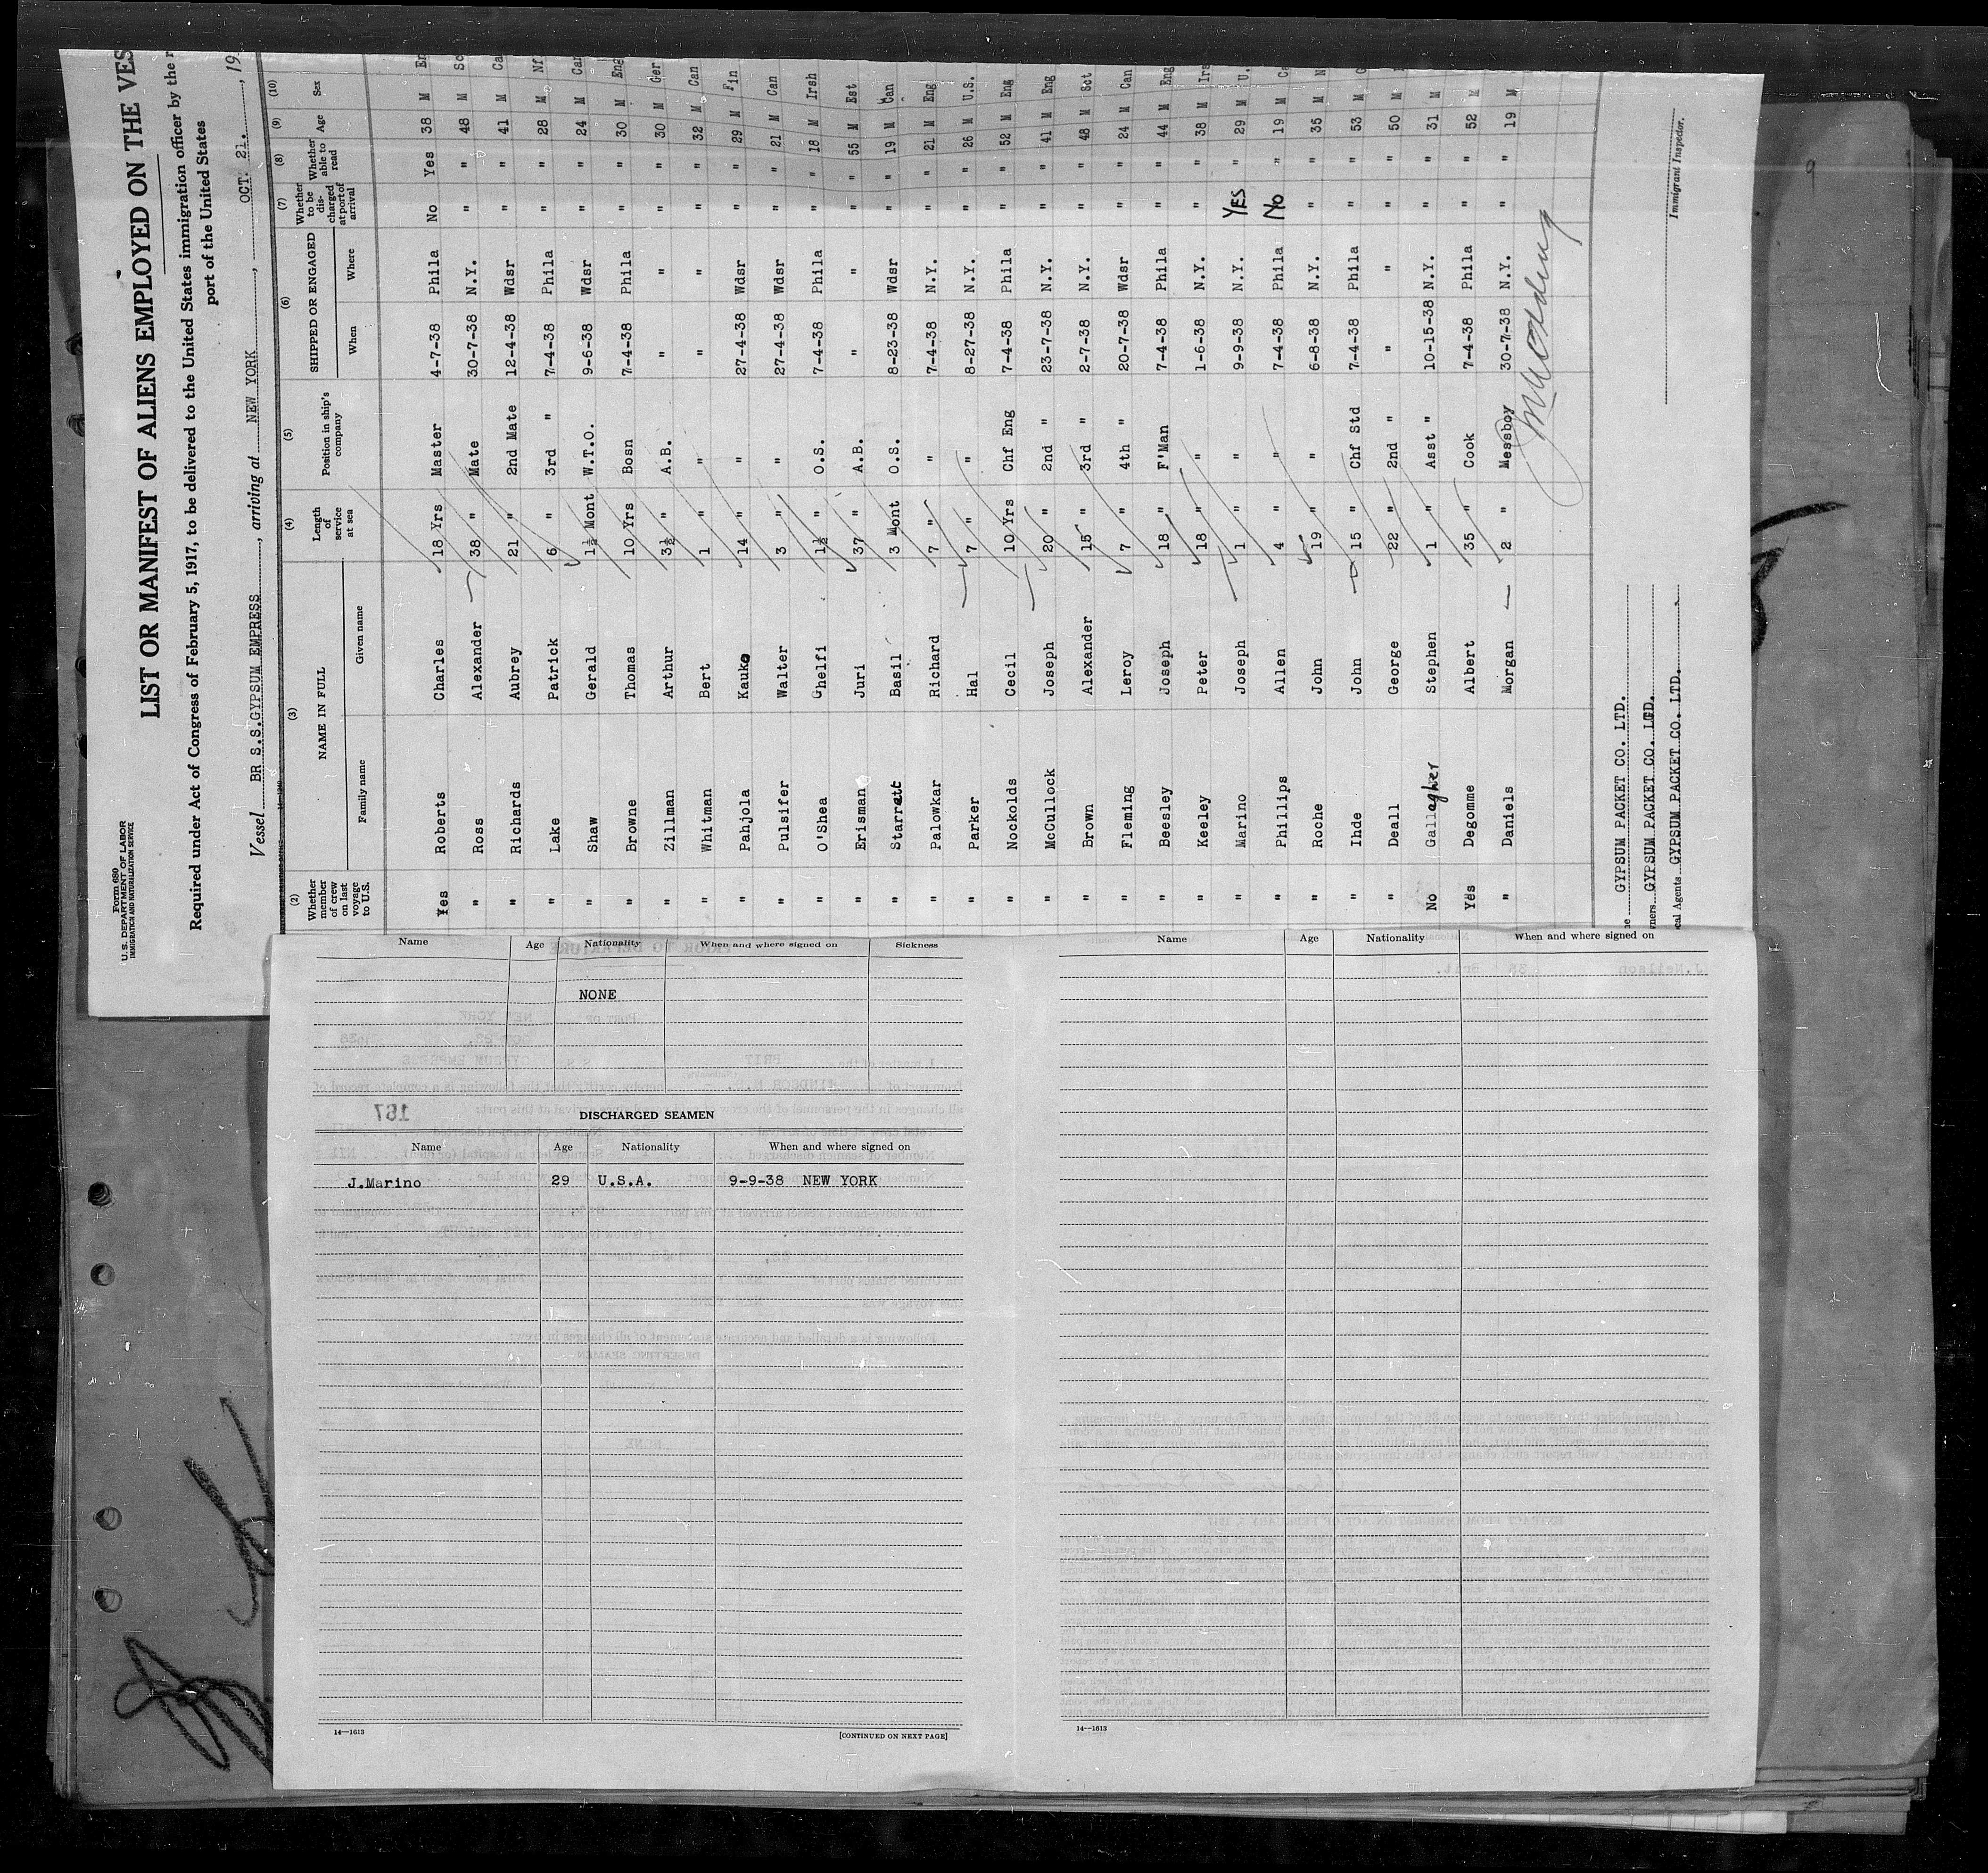 Form 680
U. S. DEPARTMENT OF LABOR
IMMIGRATION AND NATURALIZATION SERVICE
LIST OR MANIFEST OF ALIENS EMPLOYED ON THE VES
Required under Act of Congress of February 5, 1917, to be delivered to the United States immigration officer by the r
port of the United States
Vessel BR S.S.GYPSUM EMPRESS, arriving at NEW YORK, OCT. 21., 19
(2) (3) (4) (5) (6) (7) (8) (9) (10)
Whether member of crew on last voyage to U.S. NAME IN FULL Family name Given name Length of service at sea Position in ship's company SHIPPED OR ENGAGED When Where Whether to be discharged at port of arrival Whether able to read Age Sex
Yes Roberts Charles 18 Yrs Master 4-7-38 Phila No Yes 38 M En
" Ross Alexander 38 " Mate 30-7-38 N.Y. " " 48 M Sc
" Richards Aubrey 21 " 2nd Mate 12-4-38 Wdsr " " 41 M Ca
" Lake Patrick 6 " 3rd " 7-4-38 Phila " " 28 M Nf
" Shaw Gerald 1½ Mont W.T.O. 9-6-38 Wdsr " " 24 M Can
" Browne Thomas 10 Yrs Bosn 7-4-38 Phila " " 30 M Eng
" Zillman Arthur 3½ " A.B. " " " " 30 M Ger
" Whitman Bert 1 " " " " " " 32 M Can
" Pahjola Kauko 14 " " 27-4-38 Wdsr " " 29 M Fin
" Pulsifer Walter 3 " " 27-4-38 Wdsr " " 21 M Can
" O'Shea Ghelfi 1½ " O.S. 7-4-38 Phila " " 18 M Irsh
" Erisman Juri 37 " A.B. " " " " 55 M Est
" Starratt Basil 3 Mont O.S. 8-23-38 Wdsr " " 19 M Can
" Palowkar Richard 7 " " 7-4-38 N.Y. " " 21 M Eng
" Parker Hal 7 " " 8-27-38 N.Y. " " 26 M U.S.
" Nockolds Cecil 10 Yrs Chf Eng 7-4-38 Phila " " 52 M Eng
" McCullock Joseph 20 " 2nd " 23-7-38 N.Y. " " 41 M Eng
" Brown Alexander 15 " 3rd " 2-7-38 N.Y. " " 48 M Sct
" Fleming Leroy 7 " 4th " 20-7-38 Wdsr " " 24 M Can
" Beesley Joseph 18 " F'Man 7-4-38 Phila " " 44 M Eng
" Keeley Peter 18 " " 1-6-38 N.Y. " " 38 M Irs
" Marino Joseph 1 " " 9-9-38 N.Y. YES " 29 M U.
" Phillips Allen 4 " " 7-4-38 Phila No " 19 M Ca
" Roche John 19 " " 6-8-38 N.Y. " " 35 M N
" Ihde John 15 " Chf Std 7-4-38 Phila " " 53 M G
" Deall George 22 " 2nd " " " " " 50 M
No Gallagher Stephen 1 " Asst " 10-15-38 N.Y. " " 31 M
Yes Degomme Albert 35 " Cook 7-4-38 Phila " " 52 M
" Daniels Morgan 2 " Messboy 30-7-38 N.Y. " " 19 M
GYPSUM PACKET CO. LTD.
ners GYPSUM PACKET CO. LTD.
cal Agents GYPSUM PACKET CO. LTD.
Immigrant Inspector.
Name Age Nationality When and where signed on Sickness
NONE
DISCHARGED SEAMEN
Name Age Nationality When and where signed on
J.Marino 29 U.S.A. 9-9-38 NEW YORK
14—1613 [CONTINUED ON NEXT PAGE]
Name Age Nationality When and where signed on
14—1613